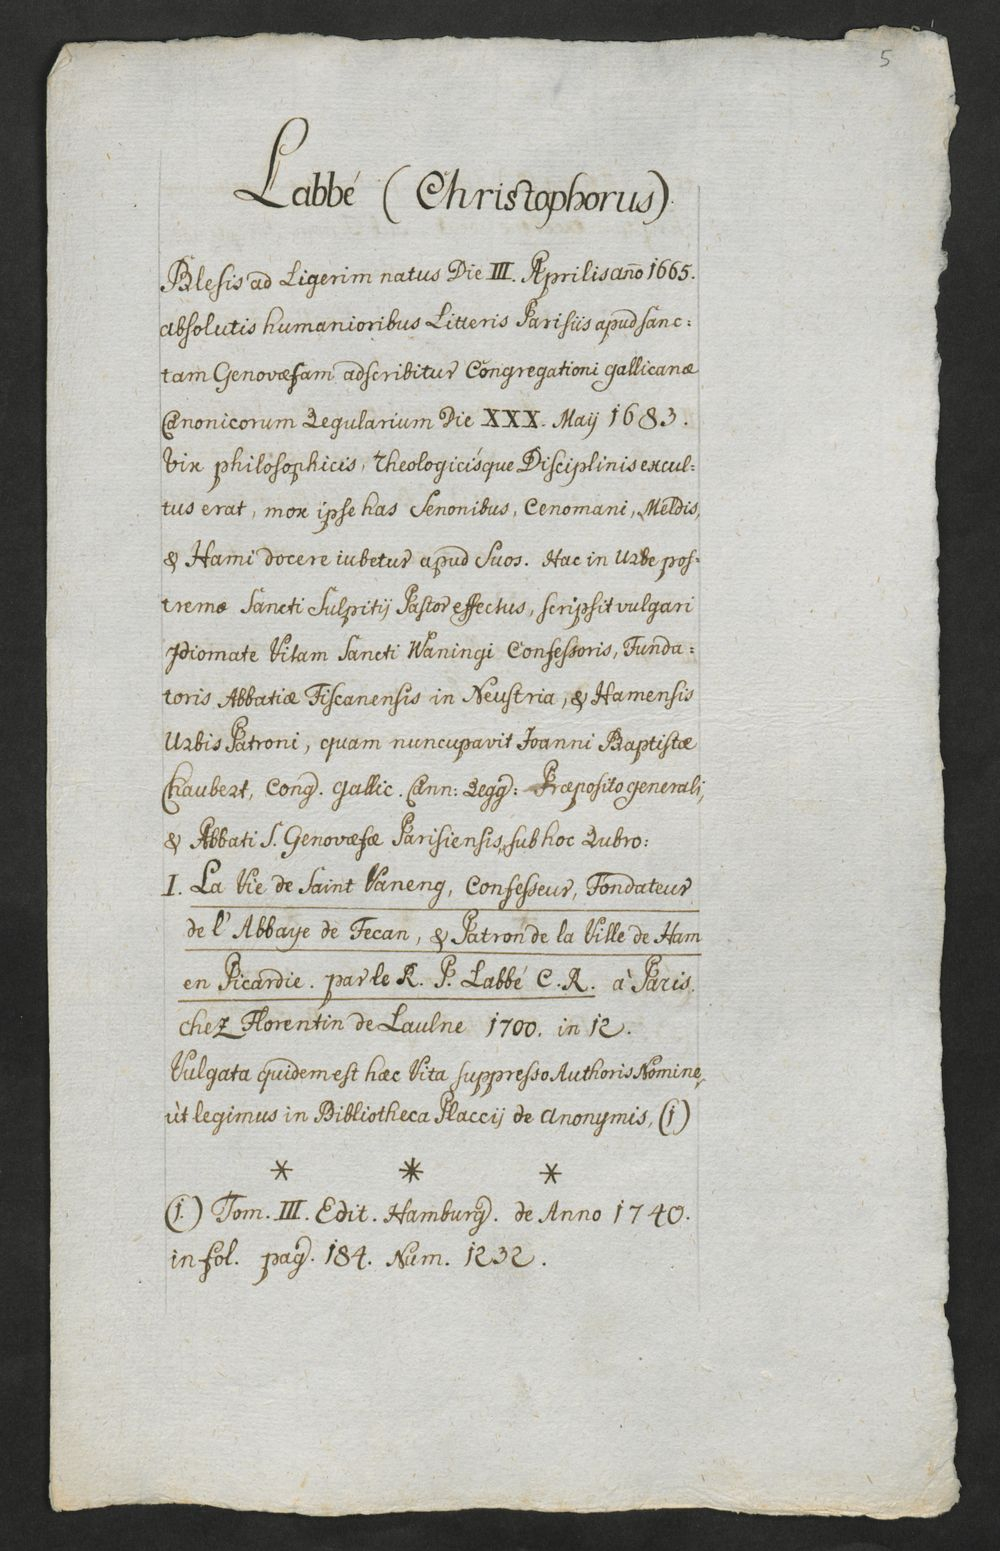 5
Labbé (Christophorus)
Blesis ad Ligerim natus Die III. Aprilis año 1665.
absolutis humanioribus Litteris Parisiis apud sanc=
tam Genovæfam adscribitur Congregationi gallicanæ
Canonicorum Regularium Die XXX. Maÿ 1683.
Vix philosophicis, Theologicísque Disciplinis excul=
tus erat, mox ipse has Senonibus, Cenomani, Meldis,
& Hami docere iubetur apud Suos. Hac in Urbe pos=
tremæ Sancti Sulpitij Pastor effectus, scripsit vulgari
Idiomate Vitam Sancti Waningi Confessoris, Funda=
toris Abbatiæ Fiscanensis in Neustria, & Hamensis
Urbis Patroni, quam nuncupavit Joanni Baptistæ
Chaubert, Cong. Gallic. Cann: Regg: Præposito generali,
& Abbati S. Genovæfæ Parisiensis, sub hoc Rubro:
I. La Vie de Saint Vaneng, Confesseur, Fondateur
de l'Abbaye de Fecan, & Patron de la Ville de Ham
en Picardie. par le R. P. Labbé C. R. à Paris.
chez Florentin de Laulne 1700. in 12.
Vulgata quidem est hæc Vita suppresso Authoris Nomine,
ùt legimus in Bibliotheca Placcij de Anonymis, (1)
* * *
(1) Tom. III. Edit. Hamburg. de Anno 1740.
in fol. pag. 184. Num. 1232.